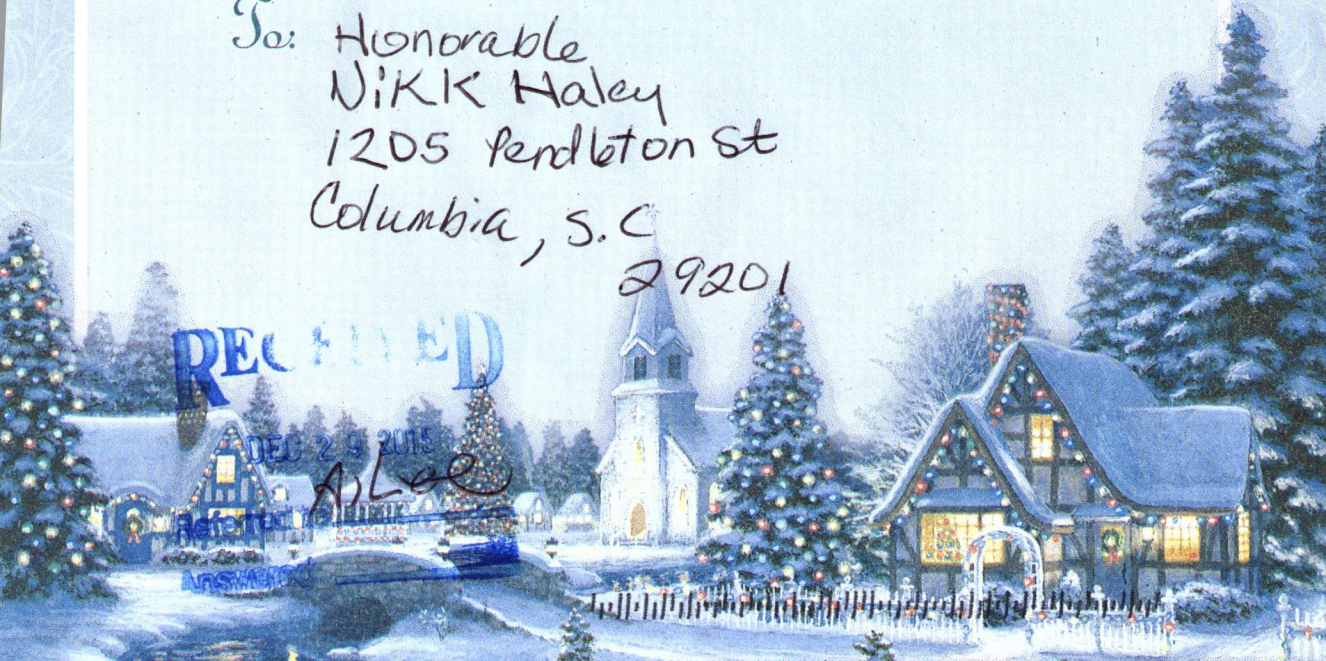 To: Honorable
NiKK Haley
1205 Pendleton St
Columbia, S.C
29201
RECEIVED
DEC 29 2015
A, Lee
Referred to
Answered